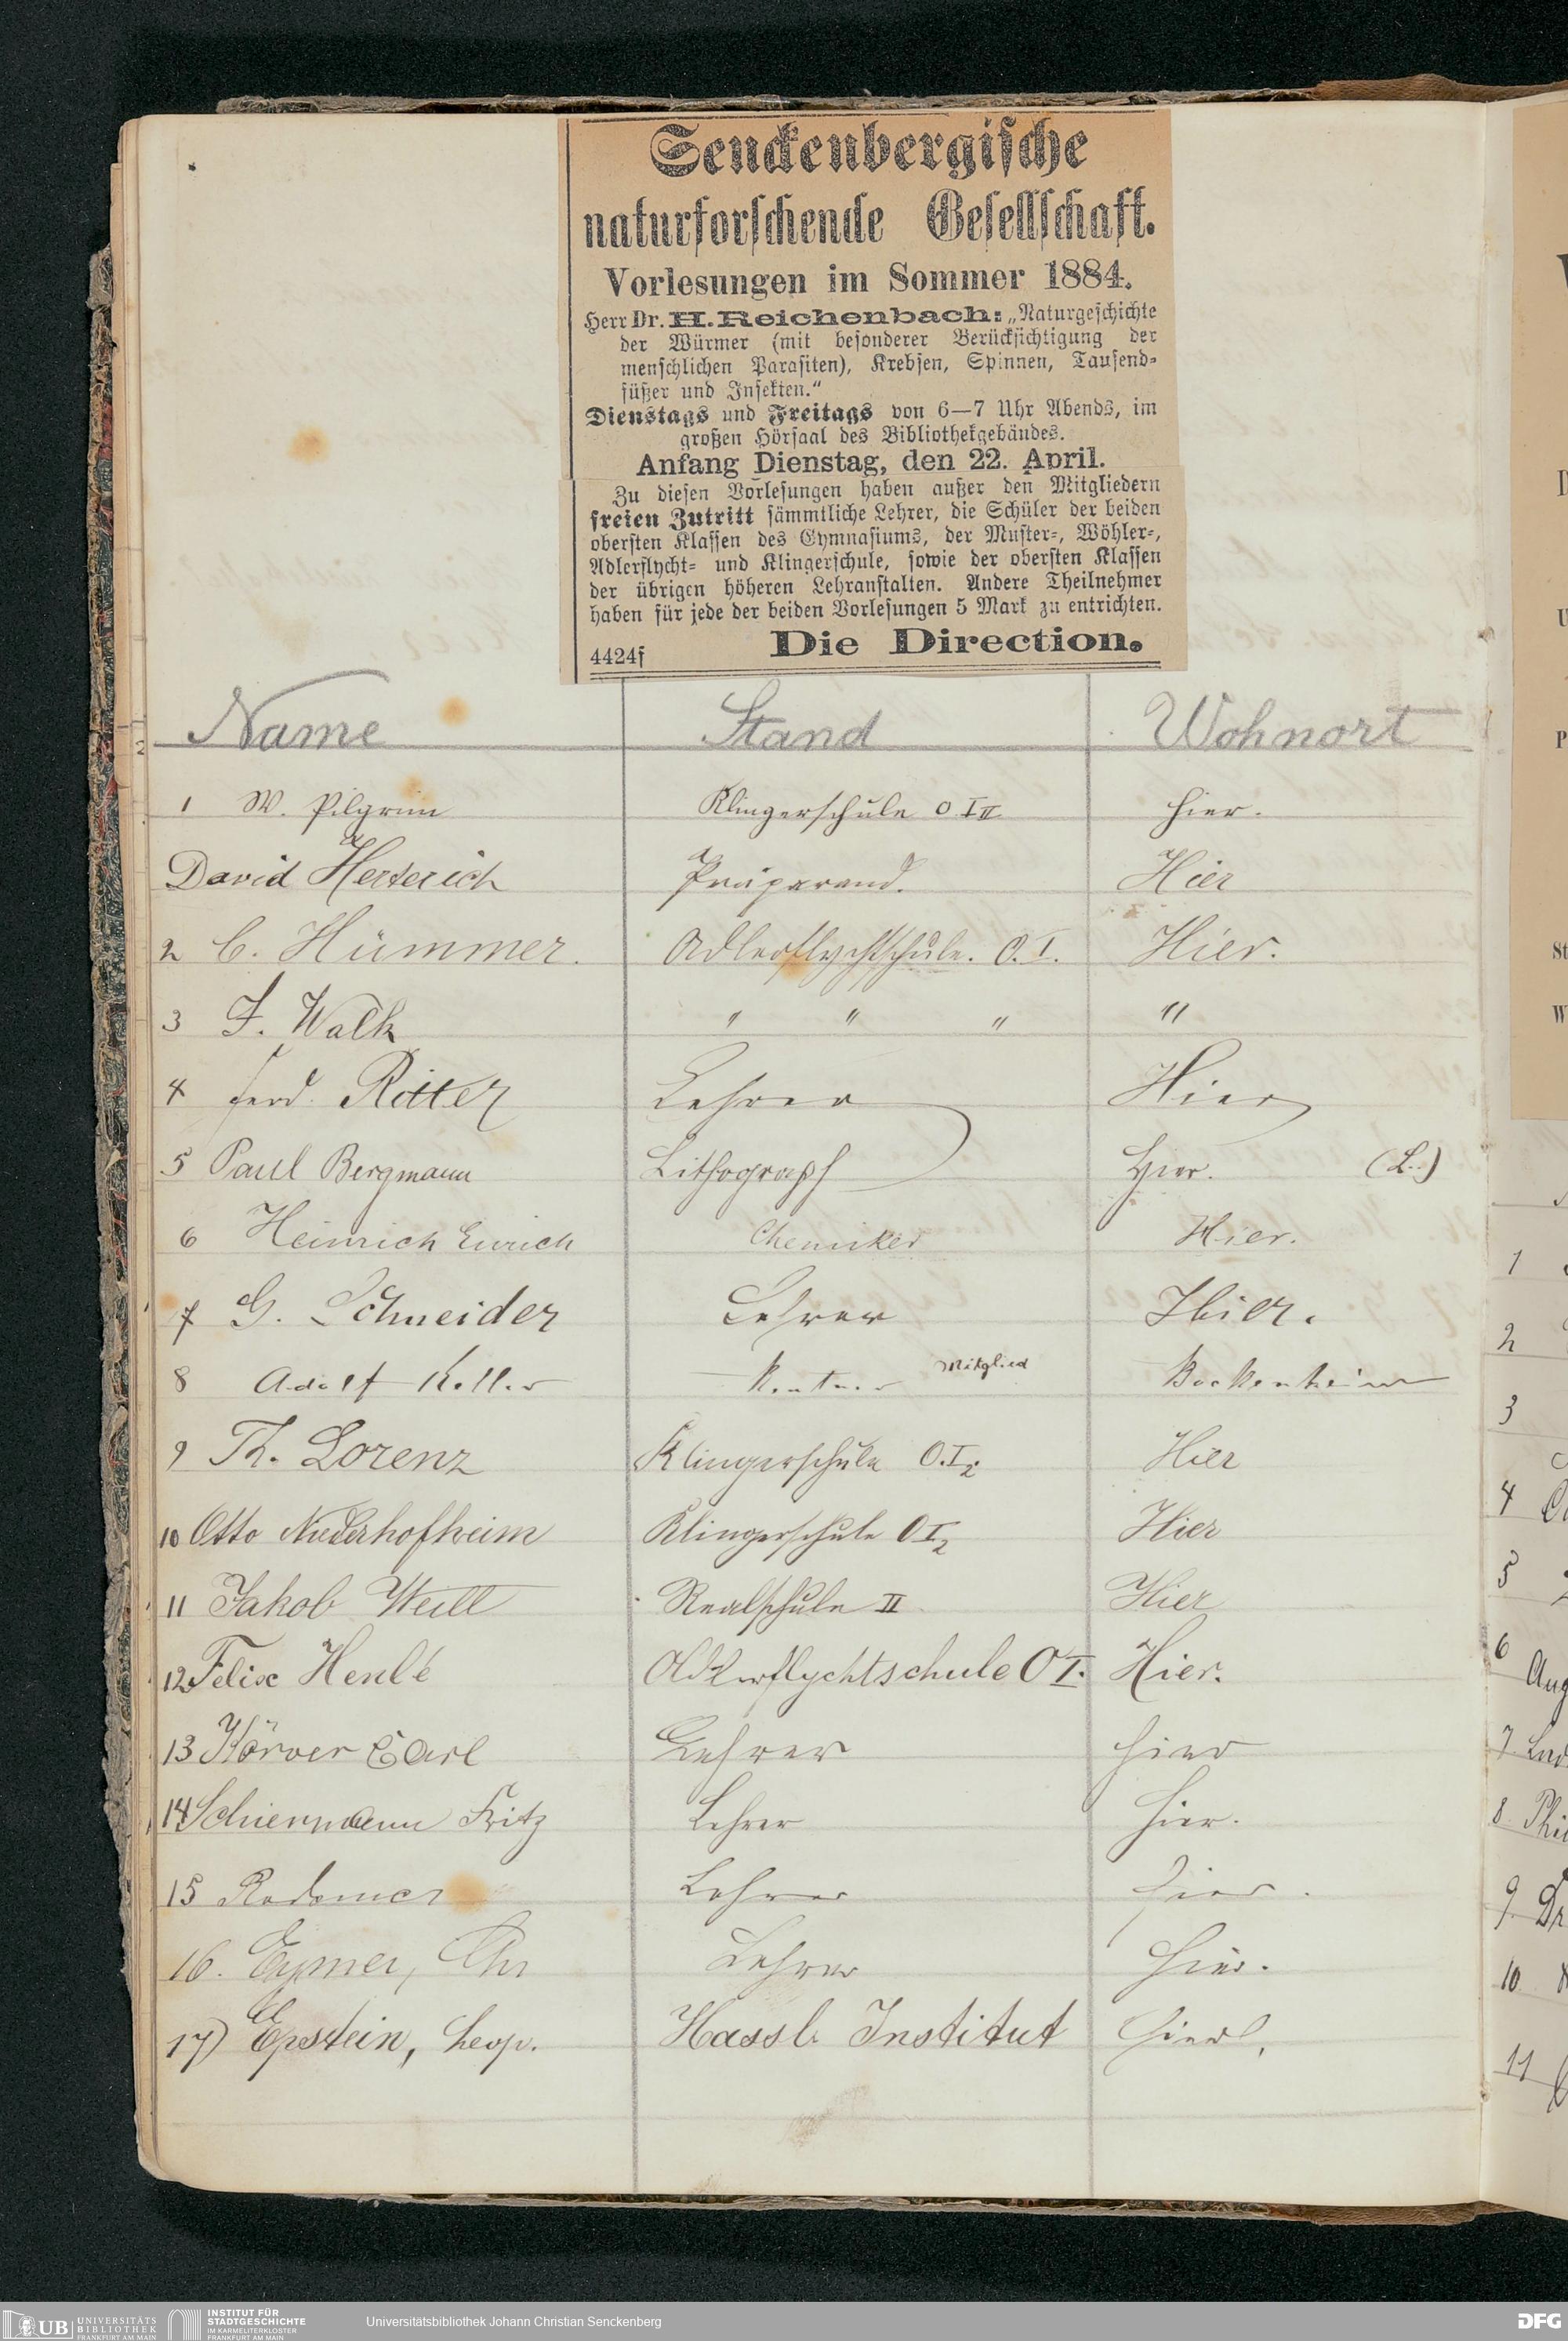 Senckenbergische
naturforschende Gesellschaft.
Vorlesungen im Sommer 1884.
Herr Dr. H. Reichenbach: „Naturgeschichte
der Würmer (mit besonderer Berücksichtigung der
menschlichen Parasiten), Krebsen, Spinnen, Tausend-
füßer und Insekten.“
Dienstags und Freitags von 6—7 Uhr Abends, im
großen Hörsaal des Bibliothekgebäudes.
Anfang Dienstag, den 22. April.
Zu diesen Vorlesungen haben außer den Mitgliedern
freien Zutritt sämmtliche Lehrer, die Schüler der beiden
obersten Klassen des Gymnasiums, der Muster-, Wöhler-,
Adlerflycht- und Klingerschule, sowie der obersten Klassen
der übrigen höheren Lehranstalten. Andere Theilnehmer
haben für jede der beiden Vorlesungen 5 Mark zu entrichten.
4424f Die Direction.
Name Stand Wohnort
1 W. Pilgrim Klingerschule O I II hier.
David Herterich Präparand. Hier
2 C. Hümmer. Adlerflychtschule. O. I. Hier.
3 F. Walk " " " "
4 Ferd. Ritter Lehrer Hier
5 Paul Bergmann Lithograph Hier. (L.)
6 Heinrich Eurich Chemiker Hier.
7 G. Schneider Lehrer Hier.
8 Adolf Keller Rentner Mitglied Bockenheim
9 Th. Lorenz Klingerschule O.I2. Hier
10 Otto Niederhofheim Klingerschule O I2 Hier
11 Jakob Weill Realschule II Hier
12 Felix Henlé Adlerflychtschule O I. Hier.
13 Körver Carl Lehrer hier
14 Schiermann Fritz Lehrer hier.
15 Lehrer hier.
16. Eymer, Chr Lehrer hier.
17) Epstein, Leop. Hassl. Institut hier.
1
2
3
4
5
6 Aug
7
8 Phi
9 Dr
10
11
UB UNIVERSITÄTS
BIBLIOTHEK
FRANKFURT AM MAIN
INSTITUT FÜR
STADTGESCHICHTE
IM KARMELITERKLOSTER
FRANKFURT AM MAIN
Universitätsbibliothek Johann Christian Senckenberg
DFG